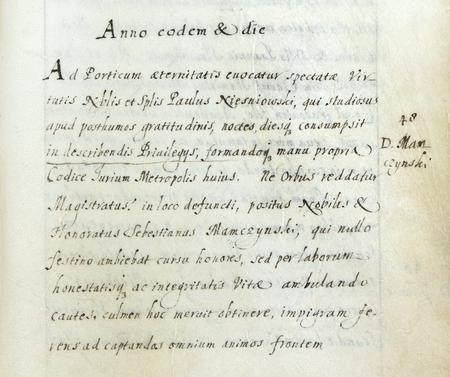 Anno eodem & die
Ad Porticum æternitatis evocatur spectatæ Vir-
tutis Nblis et Splis Paulus Niesniowski, qui studiosus
apud posthumos gratitudinis, noctes, diesq3 consumpsit
in describendis Privilegijs, formandoq3 manu propria
Codice Jurium Metropolis huius. Ne Orbus reddatur
Magistratus, in loco defuncti, positus Nobilis &
Honoratus Sebestianus Mamczynski, qui nullo
festino ambiebat cursu honores, sed per laborum
honestatisq3 ac integritatis Vitæ ambulando
cautes, culmen hoc meruit obtinere, impigram ge-
rens ad captandos omnium animos frontem
48
D. Mam
czynski